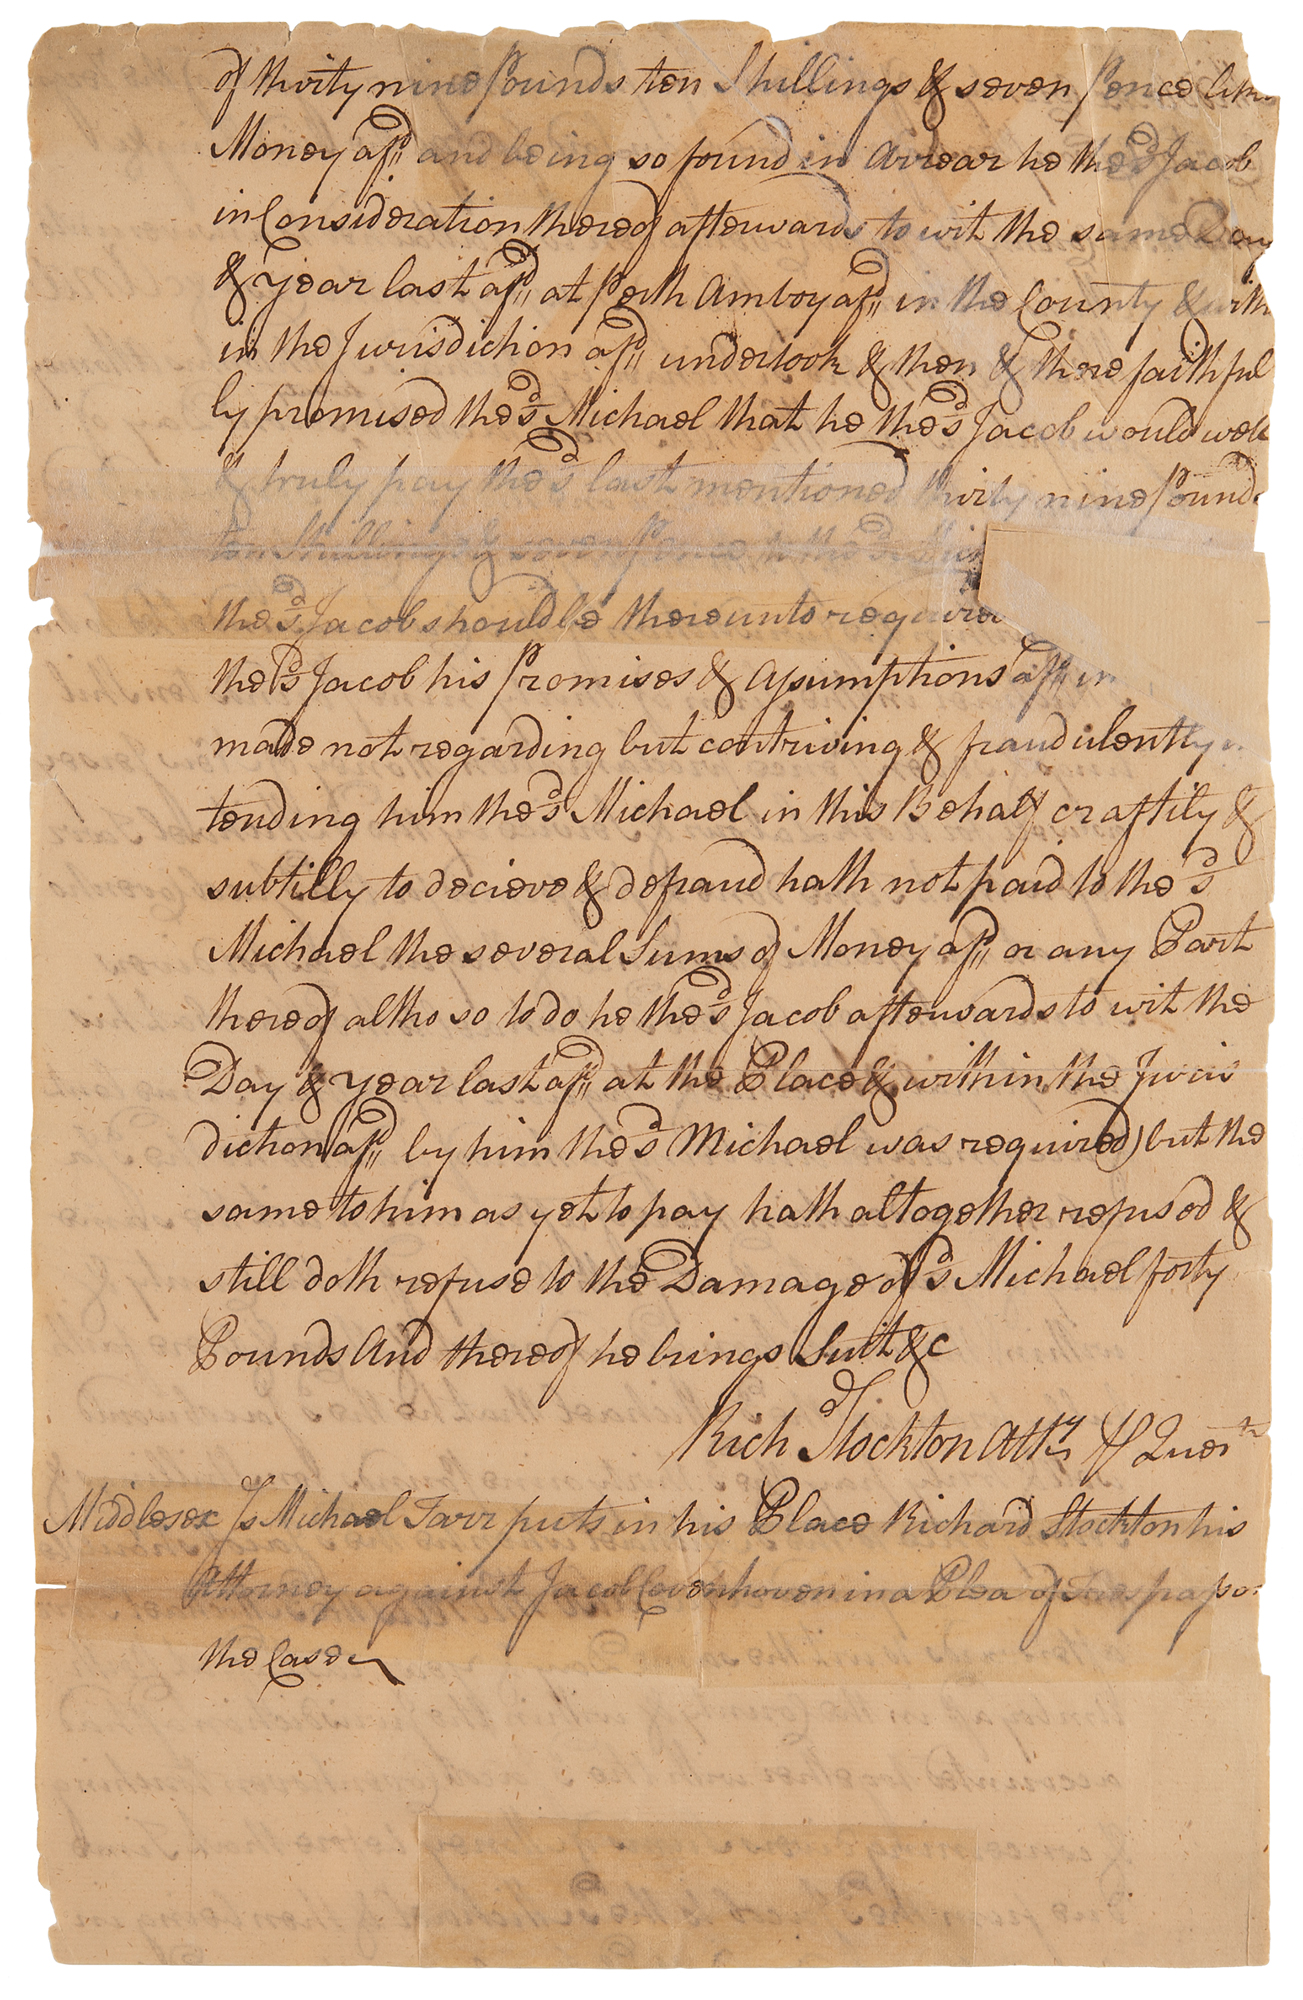 of thirty nine Pounds ten Shillings & seven Pence like
Money afsd and being so found in Arrear he the sd Jacob
in Consideration thereof afterwards to wit the same Day
& Year last afsd at Perth Amboy afsd in the County & with
in the Jurisdiction afsd undertook & then & there faithful
ly promised the sd Michael that he the sd Jacob would well
& truly pay the sd last mentioned thirty nine Pounds
ten Shillings & seven Pence to the sd
the sd Jacob should be thereunto required
the sd Jacob his Promises & Assumptions afsd in
made not regarding but contriving & fraudulently
tending him the sd Michael in this Behalf craftily &
subtilly to decieve & defraud hath not paid to the sd
Michael the several Sums of Money afsd or any Part
thereof altho so to do he the sd Jacob afterwards to wit the
Day & Year last afsd at the Place & within the Juris
diction afsd by him the sd Michael was required) but the
same to him as yet to pay hath altogether refused &
still doth refuse to the Damage of sd Michael forty
Pounds And thereof he brings Suit &c
Richd Stockton Atty Pr Quer
Middlesex Ss Michael Tarr puts in his Place Richard Stockton his
Attorney against Jacob Covenhoven in a Plea of Trespass on
the Case